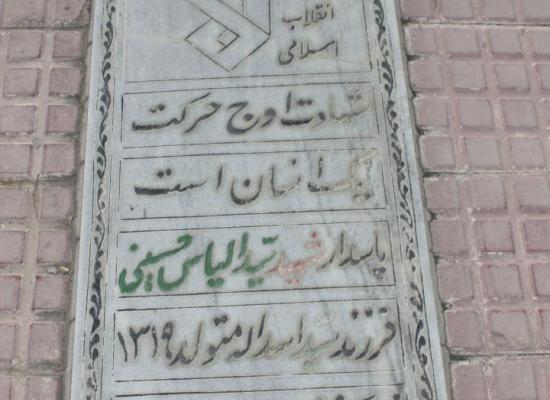 انقلاب
اسلامی
شهادت اوج حرکت
یک انسان است
پاسدار شهید سید الیاس حسینی
فرزند سید اسداله متولد ۱۳۱۹